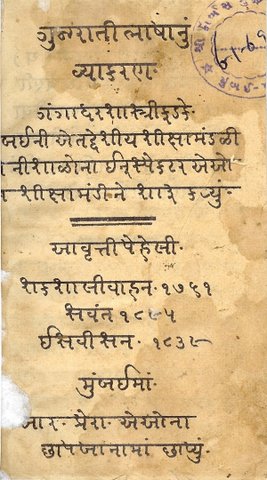 ગુજરાતી ભાષાનું
વ્યાકરણ·
ગંગાધરશાસ્ત્રીફડકે·
બઈની એતદ્દેશીય શીક્ષામંડળી
ની શાળોના ઈન્સ્પેક્ટર એઓએ
શીક્ષામંડળીને સારુ કર્યું·
આવૃત્તીપેહેલી·
શકશાલીવાહન· ૧૭૬૧
સંવત ૧૮૯૫
ઈસવીસન· ૧૮૩૯
મુંબઈમાં·
આર· પ્રેરા· એઓના
છાપખાનામાં છાપ્યું·